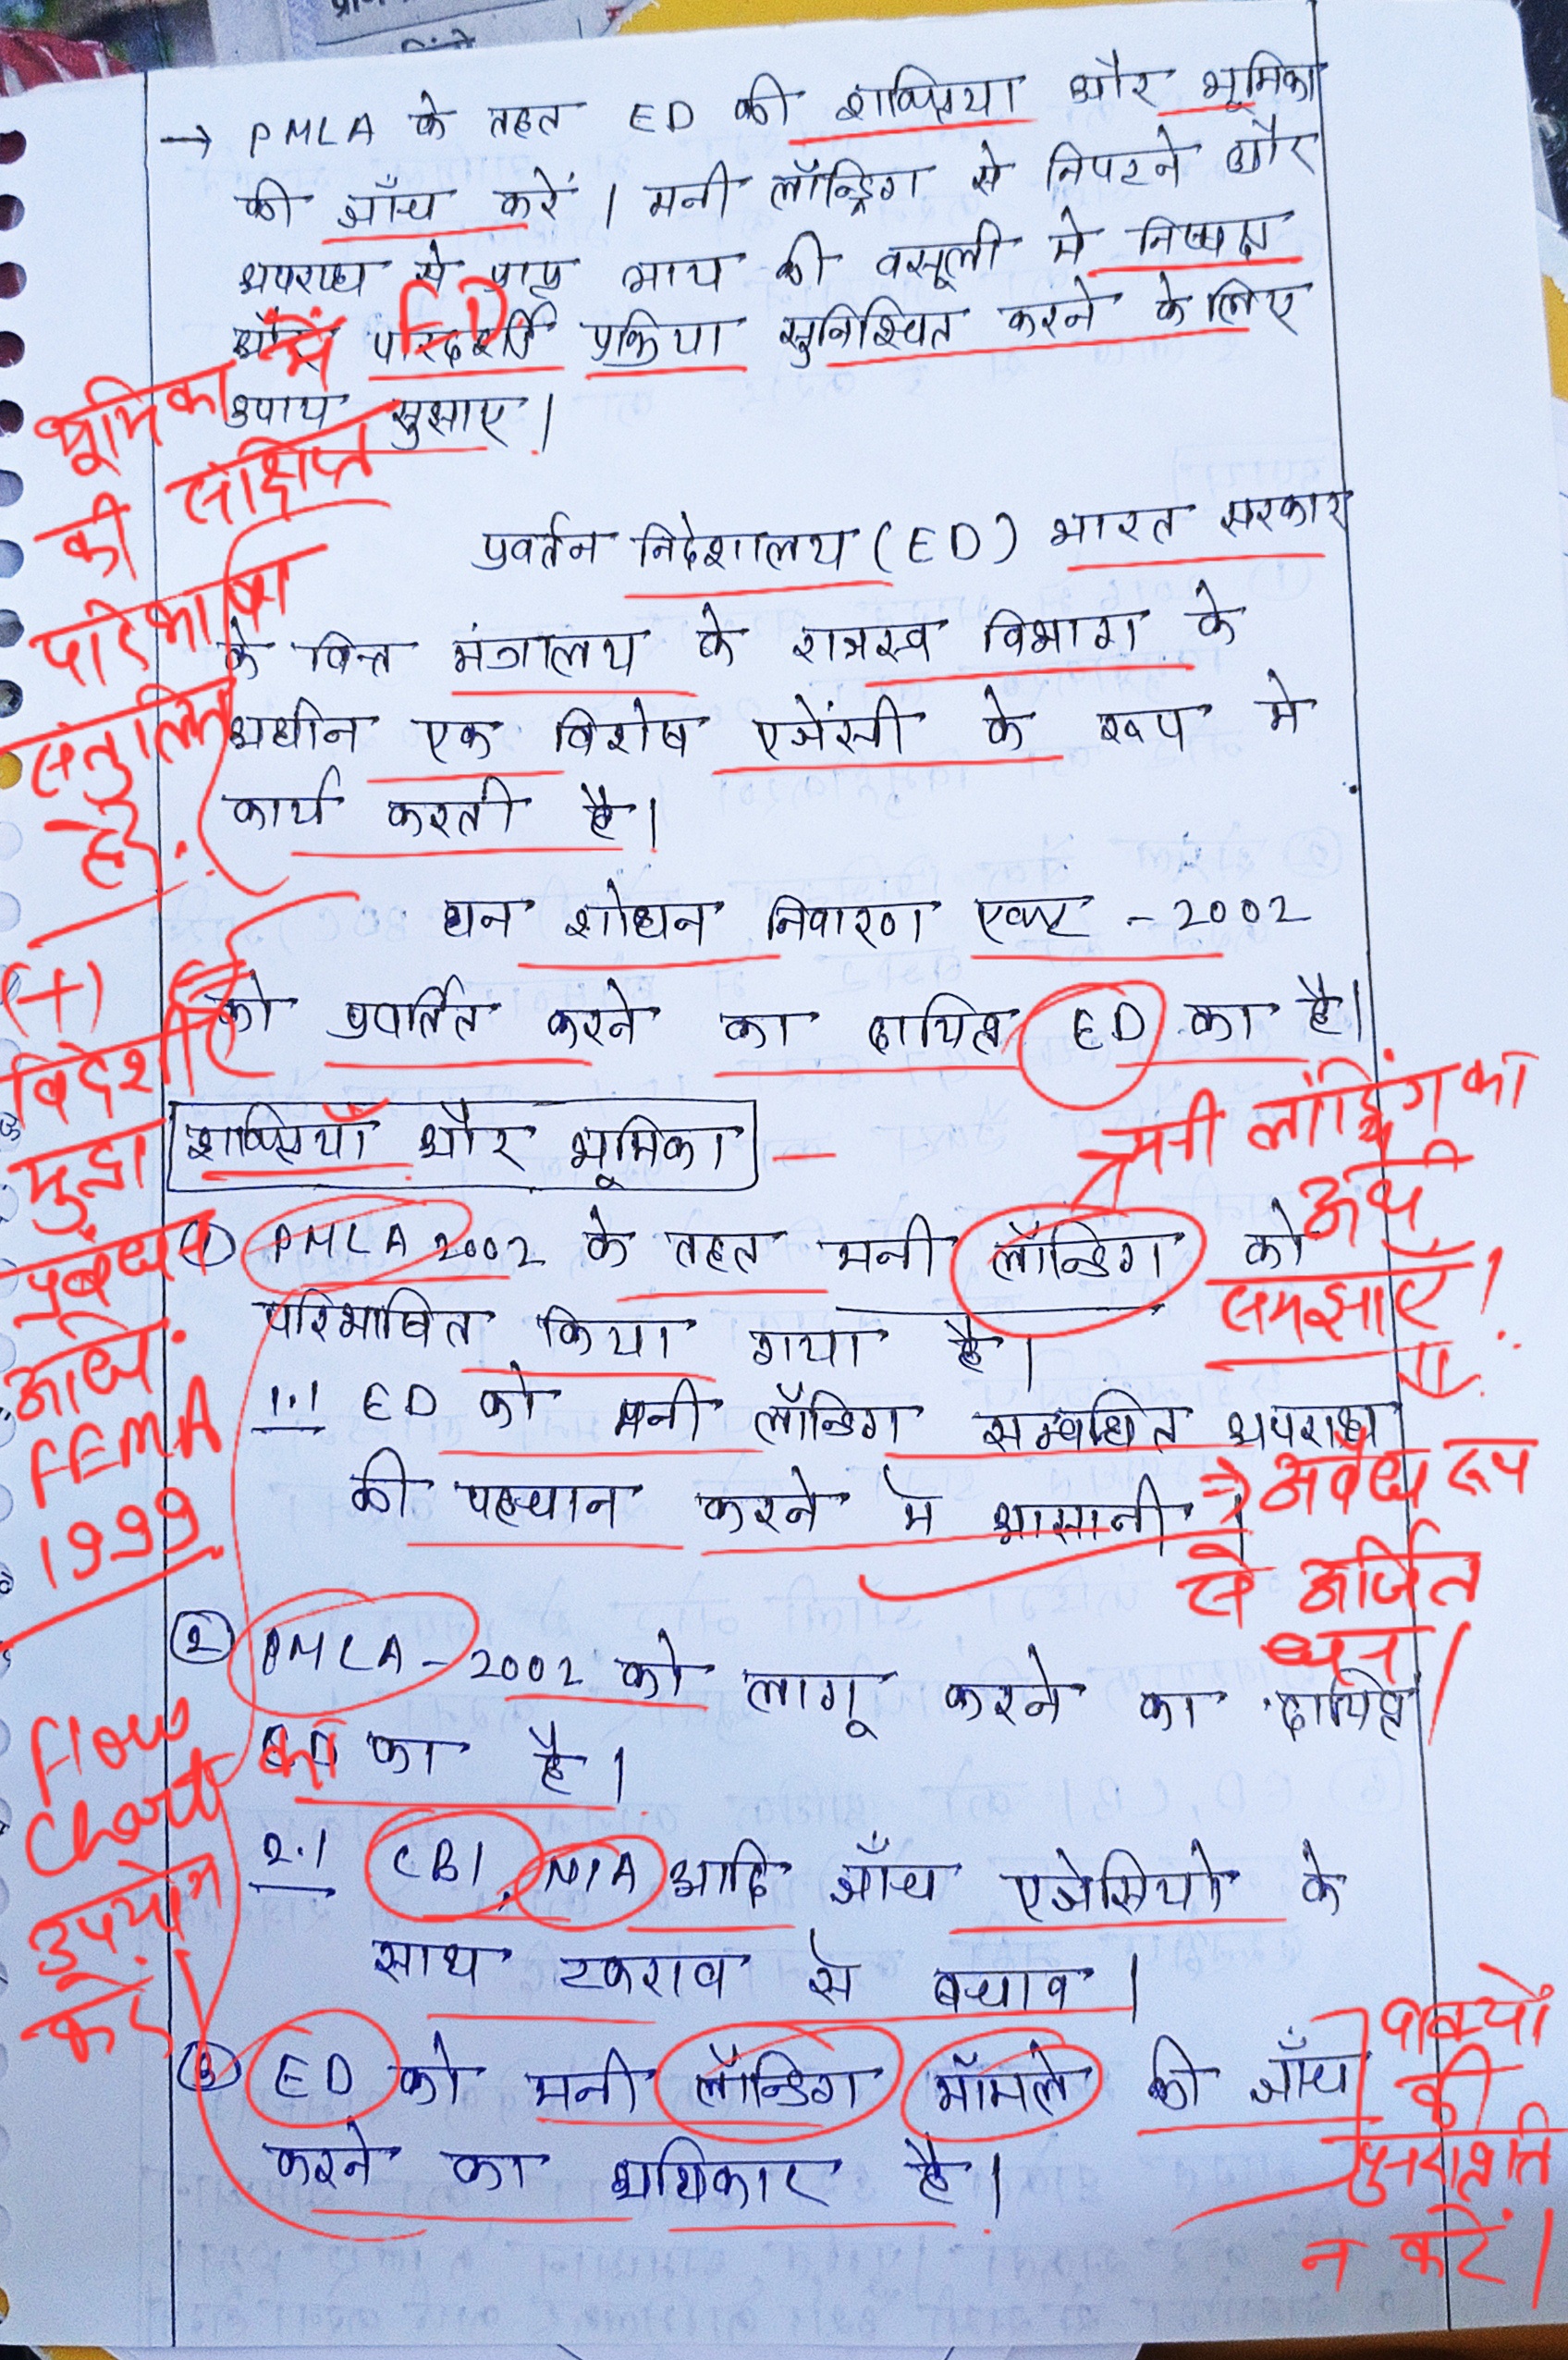 → PMLA के तहत ED की शक्तियाँ और भूमिका
की जाँच करें। मनी लॉन्ड्रिग से निपटने और
अपराध से प्राप्त आय की वसूली मे निष्पक्ष
और पारदर्शी प्रक्रिया सुनिश्चित करने के लिए
उपाय सुझाए।
भूमिका में ED
की संक्षिप्त
परिभाषा
संतुलित
है.
प्रवर्तन निदेशालय (ED) भारत सरकार
के वित्त मंत्रालय के राजस्व विभाग के
अधीन एक विशेष एजेंसी के रूप मे
कार्य करती है।
धन शोधन निवारण एक्ट - 2002
को प्रवर्तित करने का दायित्व ED का है।
(+)
विदेशी
मुद्रा
प्रबंधन
अधि.
FEMA
1999
शक्तियाँ और भूमिका
मनी लांड्रिंग का
अर्थ
समझाएँ!
① PMLA 2002 के तहत मनी लॉन्डिग को
परिभाषित किया गया है।
1.1 ED को मनी लॉन्डिग सम्बधित अपराध
की पहचान करने मे आसानी।
→ अवैध रूप
से अर्जित
धन।
② PMLA - 2002 को लागू करने का दायित्व
ED का है।
Flow
Chart
उपयोग
करें
2.1 CBI, NIA आदि जाँच एजेसियो के
साथ टकराव से बचाव।
③ ED को मनी लॉन्डिग मॉमले की जाँच
करने का अधिकार है।
वाक्यों
की
पुनरावृत्ति
न करें।